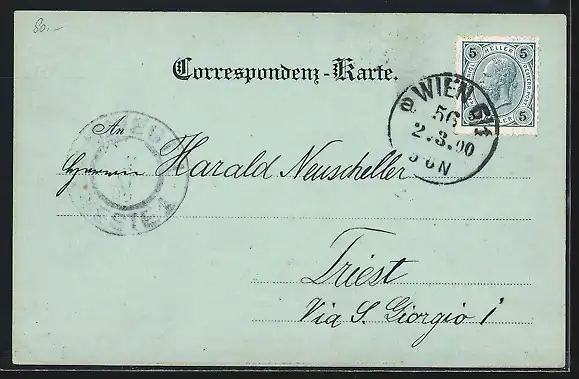 80.-
5 HELLER 5
5 5
Correspondenz-Karte.
WIEN 6/1
56
2.3.00
An
Herrn Harald Neuscheller
Triest
Via S. Giorgio 1